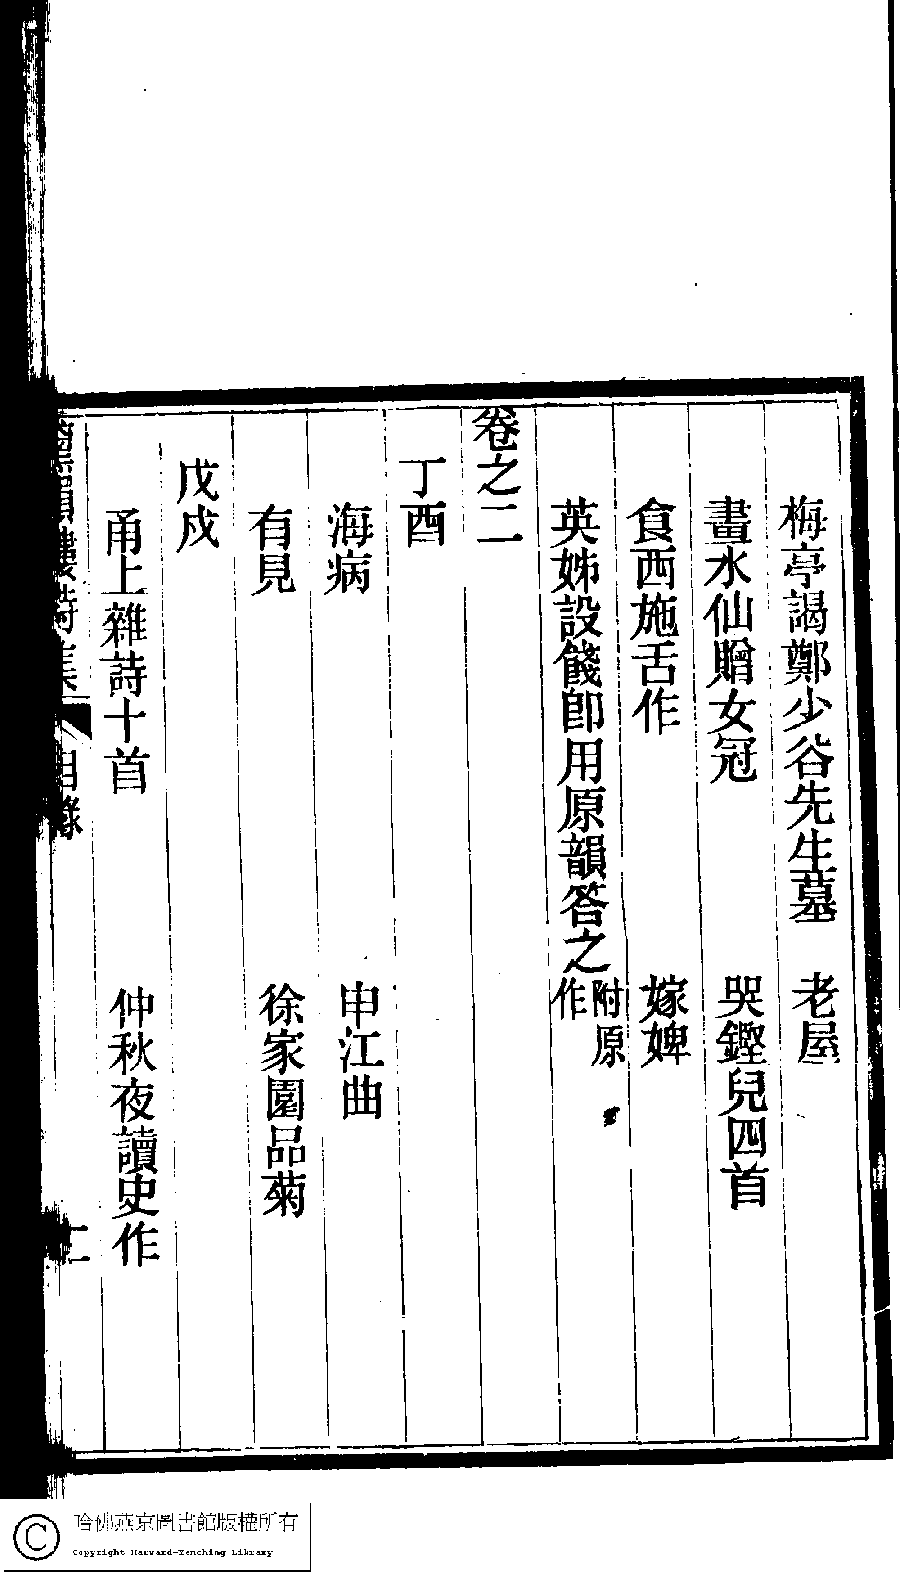 梅亭謁鄭少谷先生墓　老屋
畫水仙贈女冠　哭鏗兒四首
食西施舌作　嫁婢
英姊設餞卽用原韻答之附原作
卷之二
丁酉
海病　申江曲
有見　徐家園品菊
戊戌
甬上雜詩十首　仲秋夜讀史作
韻樓詩集　目錄　二
哈佛燕京圖書館版權所有
Copyright Harvard-Yenching Library